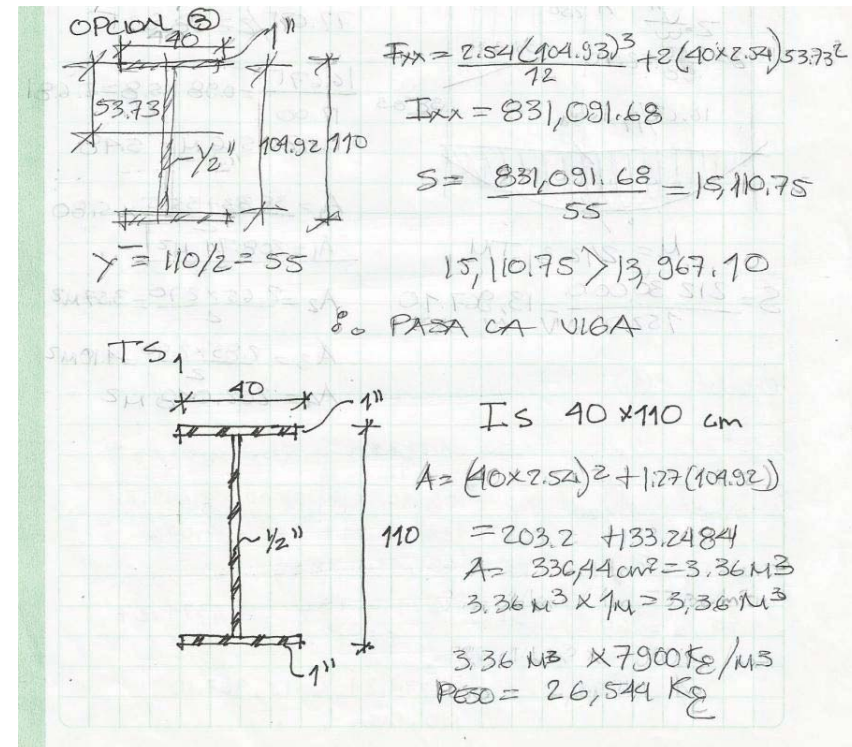 OPCION ③
40
1"
53.73
1/2"
104.92
110
Y̅ = 110/2 = 55
Ixx = 2.54(104.93)³/12 + 2(40x2.54)53.73²
Ixx = 831,091.68
S = 831,091.68/55 = 15,110.75
15,110.75 > 13,967.10
∴ PASA LA VIGA
TS1
40
1"
1/2"
110
1"
IS 40 x110 cm
A= (40x2.54)2 +1.27(104.92)
= 203.2 +133.2484
A= 336,44 cm² = 3.36 M3
3.36 M3 x 1M = 3,36 M3
3.36 M3 x7900 Kg/M3
PESO = 26,544 Kg